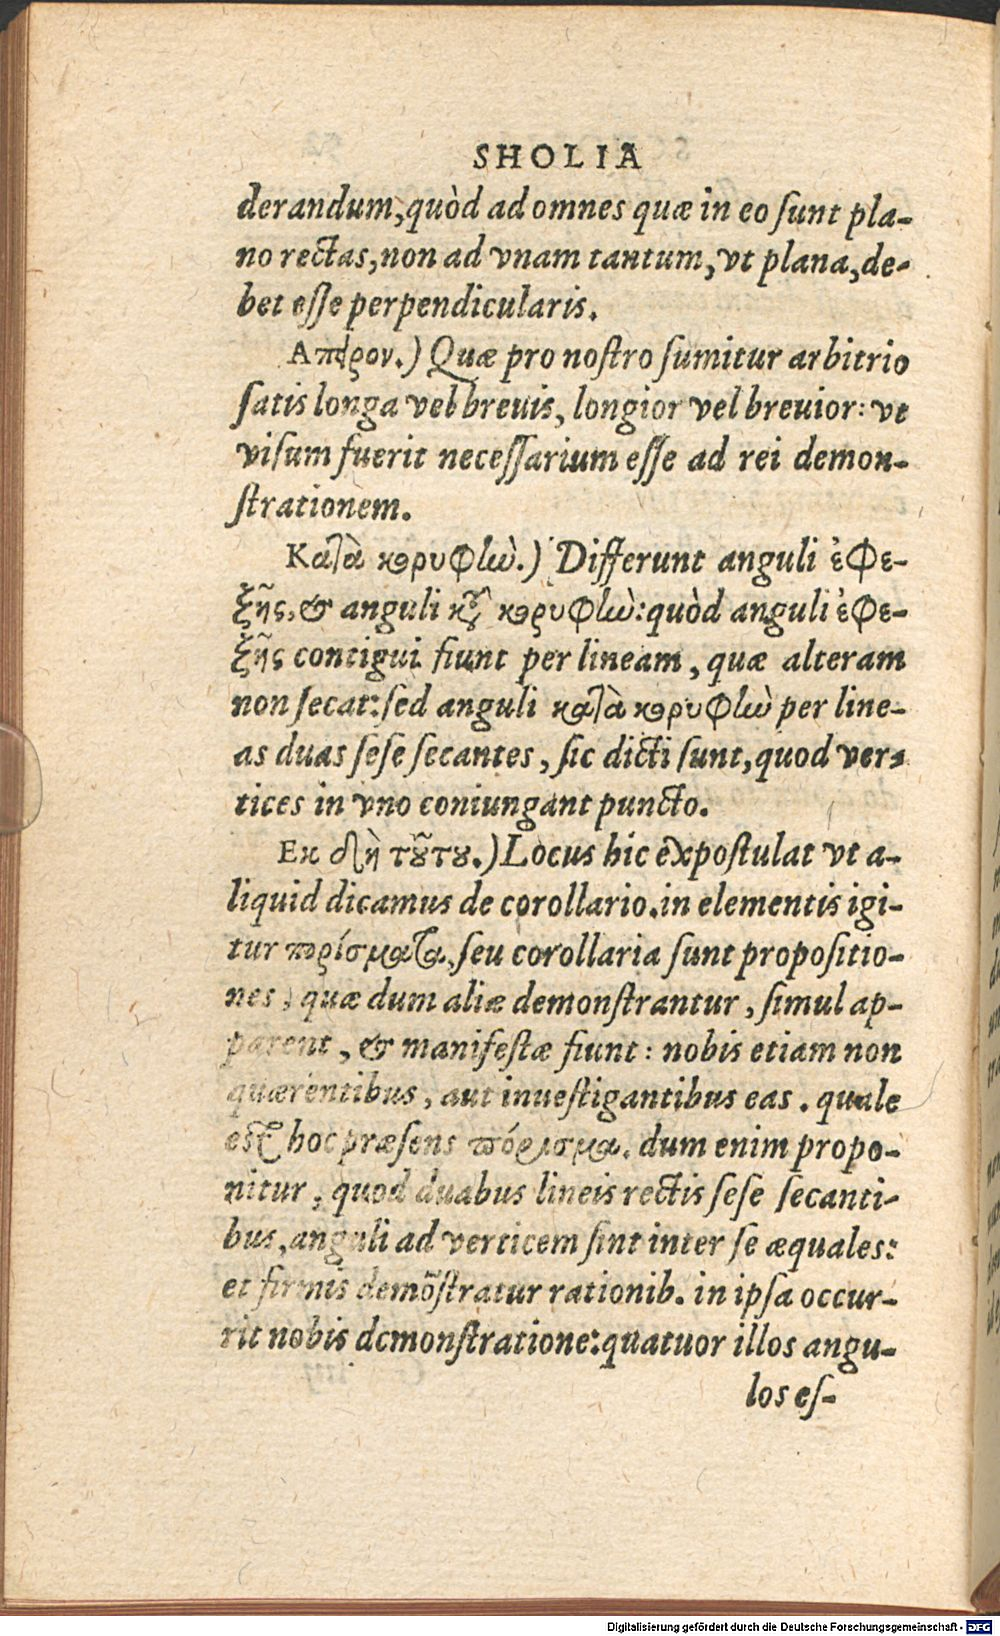 SHOLIA
derandum, quòd ad omnes quæ in eo ſunt pla-
no rectas, non ad vnam tantum, vt plana, de-
bet eſſe perpendicularis.
Απειρον.) Quæ pro noſtro ſumitur arbitrio
ſatis longa vel breuis, longior vel breuior: vt
viſum fuerit neceſſarium eſſe ad rei demon-
ſtrationem.
Καταὰ κορυφἰω.) Differunt anguli ἐφε-
ξῆς, & anguli κ κορυφἰω: quòd anguli ἐφε-
ξῆς contigui fiunt per lineam, quæ alteram
non ſecat: ſed anguli κατὰ κορυφἰω per line-
as duas ſeſe ſecantes, ſic dicti ſunt, quod ver-
tices in vno coniungant puncto.
Εκ δὴ τούτου.) Locus hic expoſtulat vt a-
liquid dicamus de corollario. in elementis igi-
tur πορίσματα, ſeu corollaria ſunt propoſitio-
nes, quæ dum aliæ demonſtrantur, ſimul ap-
parent, & manifeſtæ fiunt: nobis etiam non
quærentibus, aut inueſtigantibus eas. quale
eſt hoc præſens πόρισμα. dum enim propo-
nitur, quod duabus lineis rectis ſeſe ſecanti-
bus, anguli ad verticem ſint inter ſe æquales:
et firmis demõſtratur rationib. in ipſa occur-
rit nobis demonſtratione: quatuor illos angu-
los eſ-
Digitalisierung gefördert durch die Deutsche Forschungsgemeinschaft - DFG